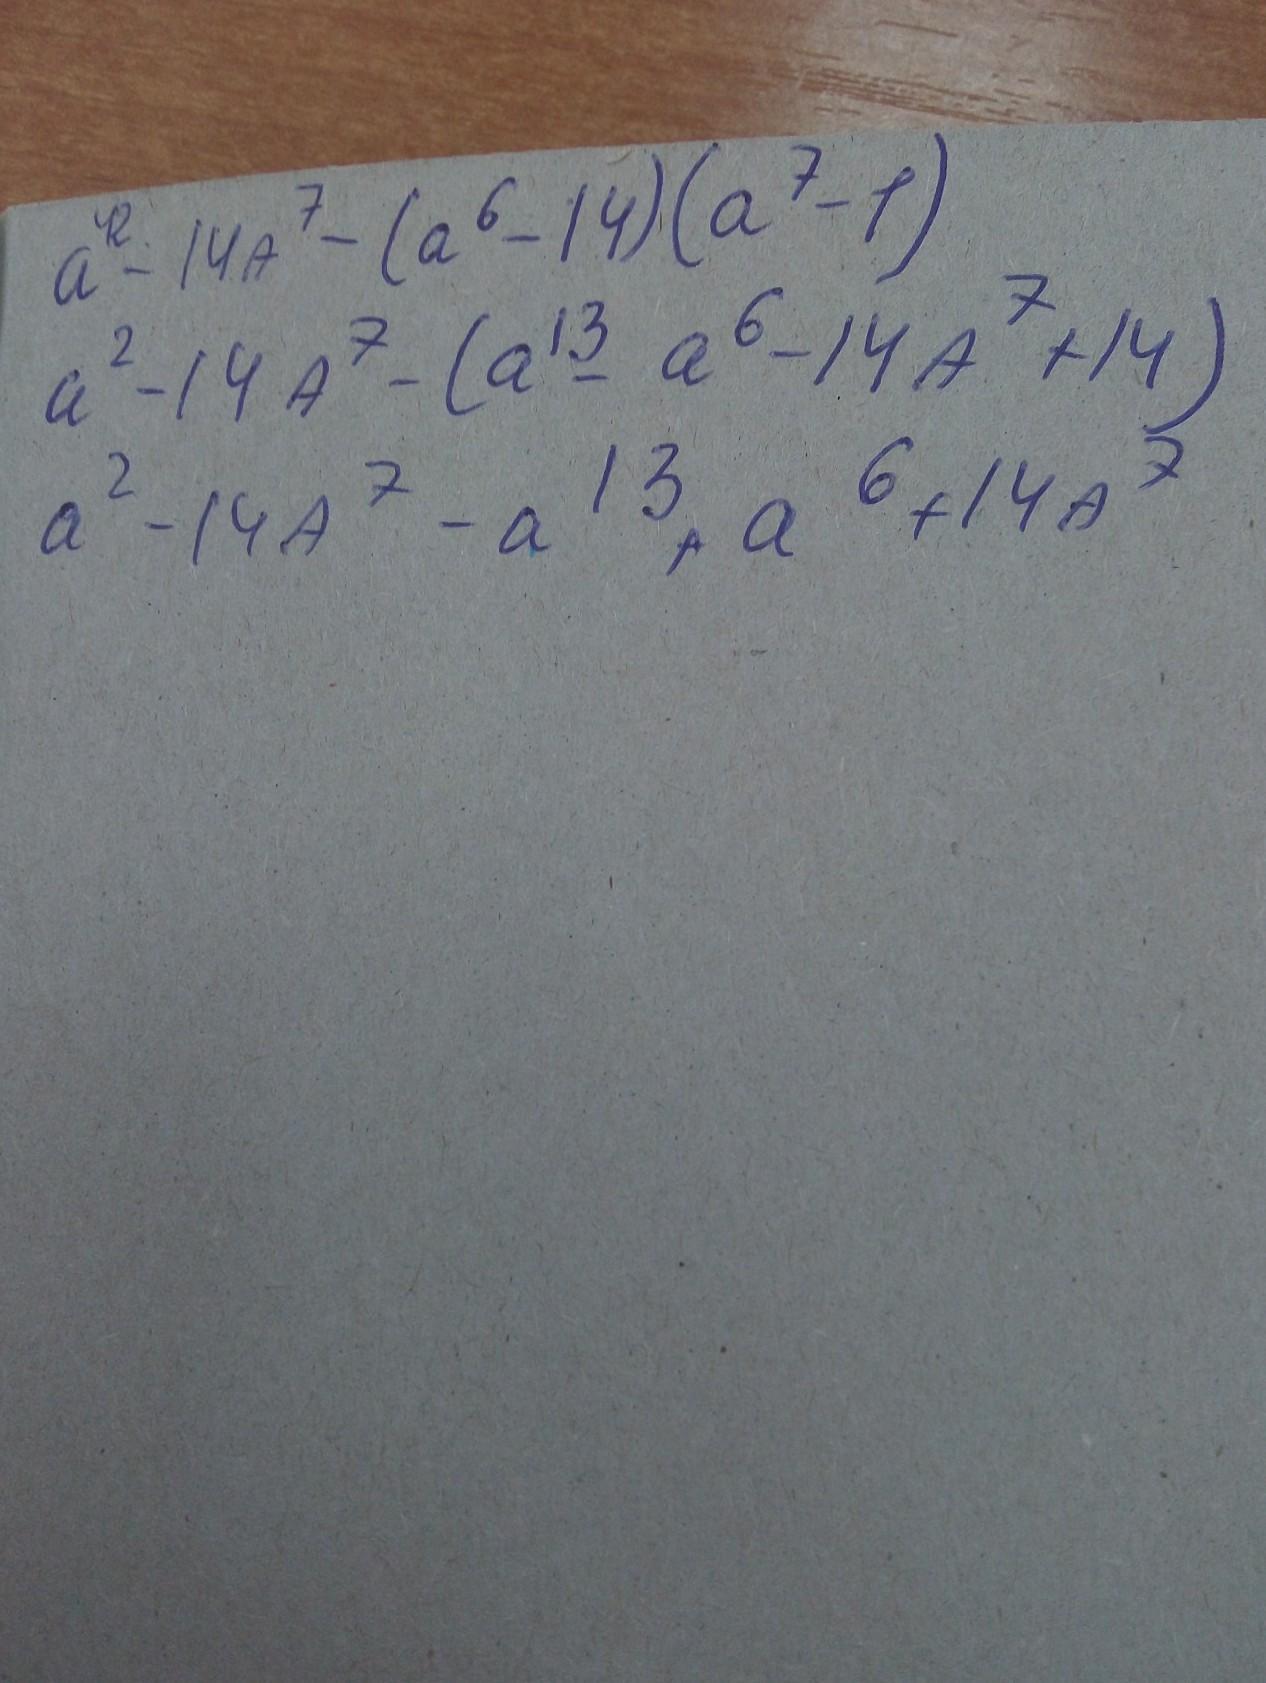 a² - 14A⁷ - (a⁶ - 14)(a⁷ - 1)
a² - 14A⁷ - (a¹³ - a⁶ - 14A⁷ + 14)
a² - 14A⁷ - a¹³ + a⁶ + 14A⁷